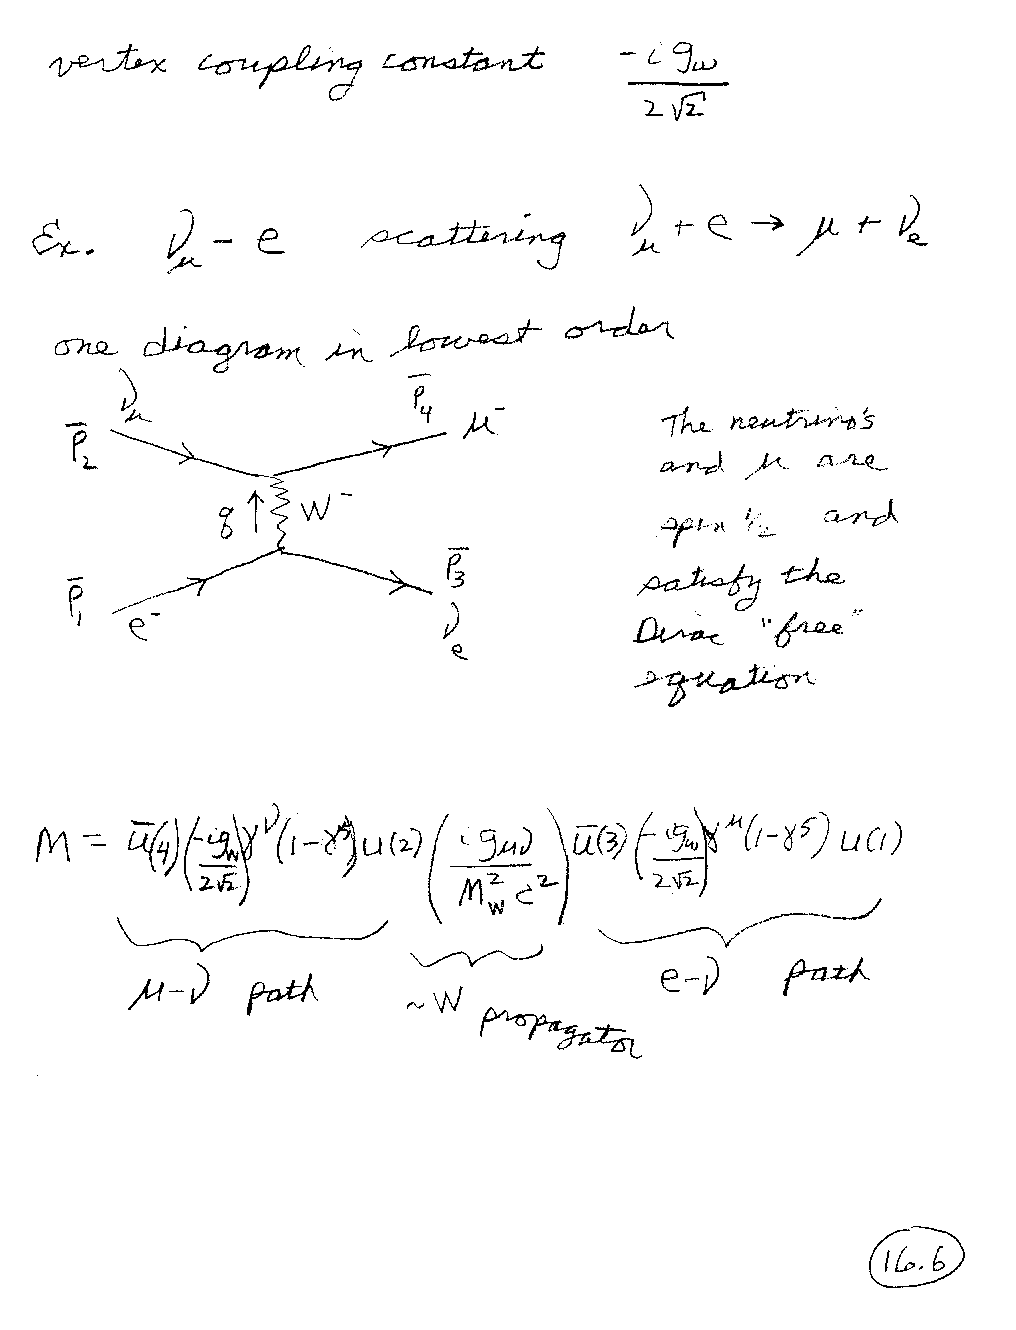 vertex coupling constant -i g_w / 2√2
Ex. ν_μ - e scattering ν_μ + e → μ + ν_e
one diagram in lowest order
ν_μ p̄_4 μ⁻
p̄_2
q ↑ W⁻
p̄_1 e⁻ p̄_3 ν_e
The neutrino's
and μ are
spin 1/2 and
satisfy the
Dirac "free"
equation
M = ū(4) (-i g_w / 2√2) γ^ν (1-γ^5) u(2) (i g_μν / M_W^2 c^2) ū(3) (-i g_w / 2√2) γ^μ (1-γ^5) u(1)
μ-ν path ~W propagator e-ν path
16.6